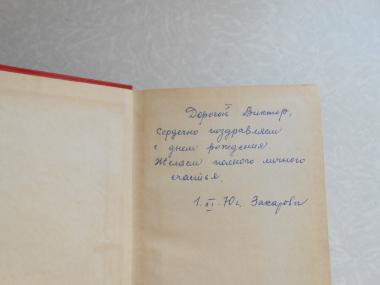 Дорогой Виктор,
Сердечно поздравляем
с днем рождения
Желаем полного личного
счастья.
1. XI. 70 г. Захаровы